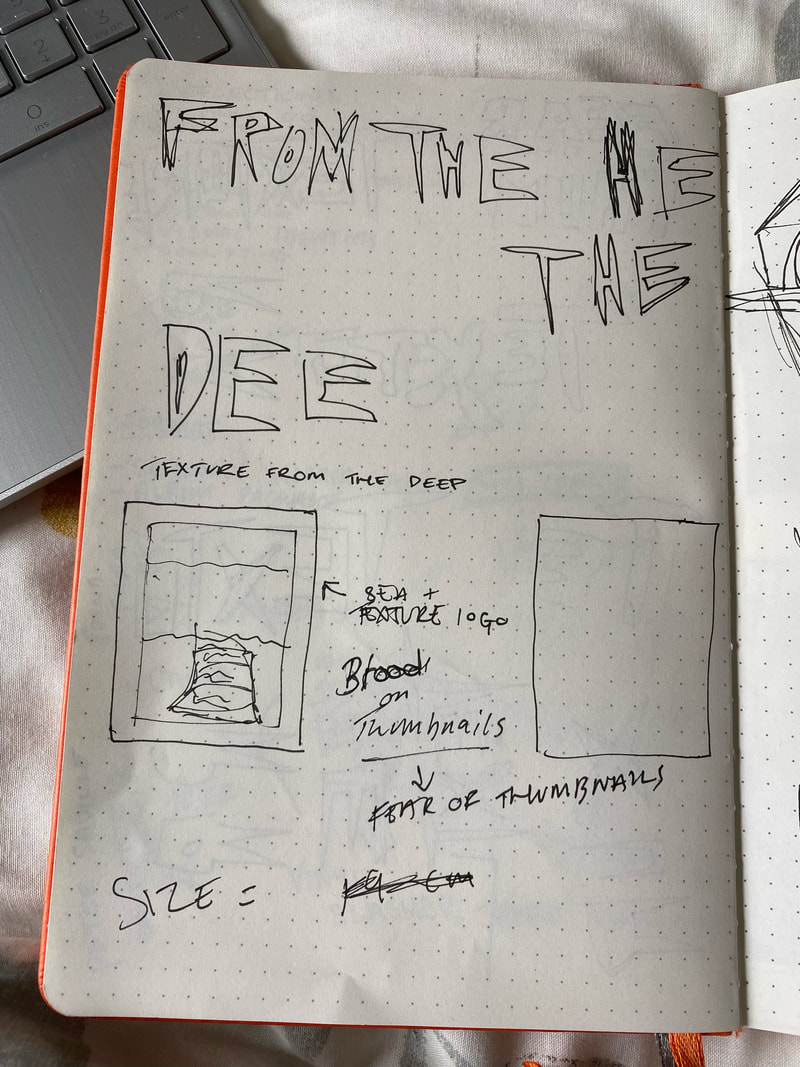 FROM THE HE
THE
DEE
TEXTURE FROM THE DEEP
SEA +
TEXTURE LOGO
on
Thumbnails
FEAR OF THUMBNAILS
SIZE =
2
+
3
0
ins